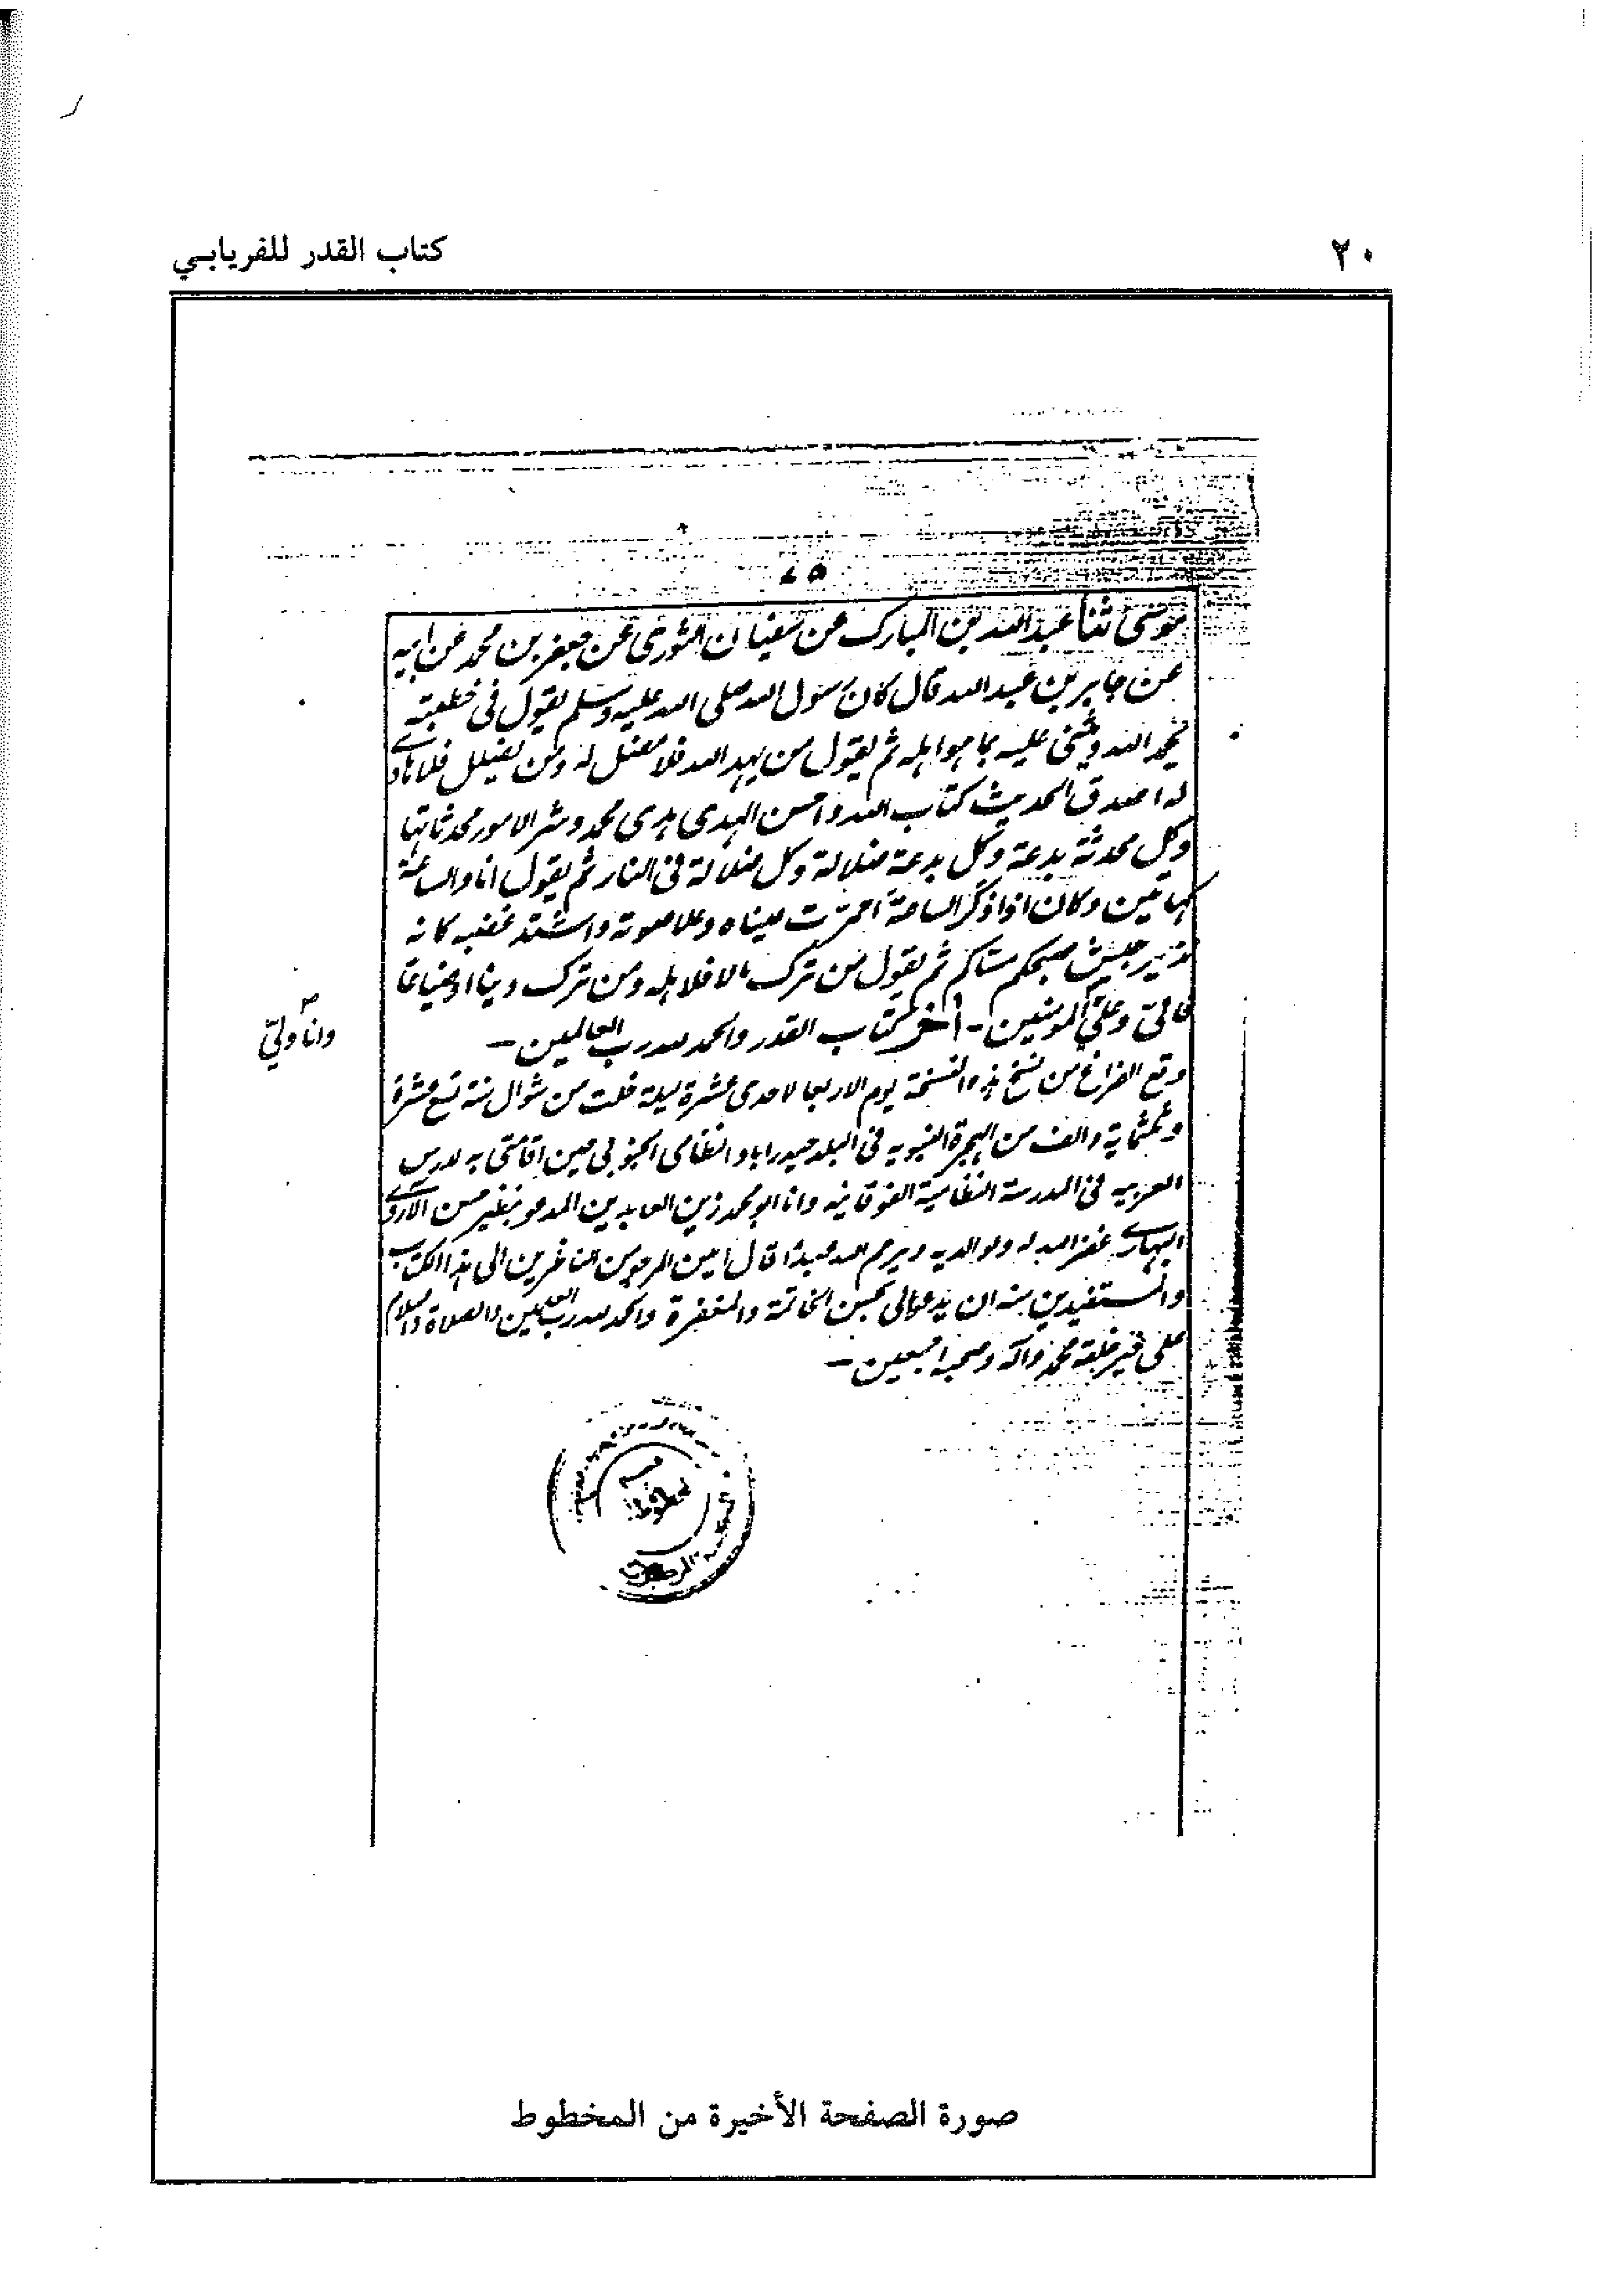 ٢٠
كتاب القدر للفريابي
موسى ثنا عبد الله بن المبارك عن سفيان الثوري عن جعفر بن محمد عن ابيه
عن جابر بن عبد الله قال كان رسول الله صلى الله عليه وسلم يقول فى خطبته
يحمد الله ويثنى عليه بما هو اهله ثم يقول من يهد الله فلا مضل له ومن يضلل فلا هادى
له اصدق الحديث كتاب الله واحسن الهدى هدى محمد وشر الامور محدثاتها
وكل محدثة بدعة وكل بدعة ضلالة وكل ضلالة فى النار ثم يقول انا والساعة
كهاتين وكان اذا ذكر الساعة احمرت عيناه وعلا صوته واشتد غضبه كانه
نذير جيش صبحكم مساكم ثم يقول من ترك مالا فلاهله ومن ترك دينا او ضياعا
فالى وعلى المومنين - آخر كتاب القدر والحمد لله رب العالمين -
وانا ولى
وقع الفراغ من نسخ هذه النسخة يوم الاربعا لاحدى عشرة ليلة خلت من شوال سنة تسع عشرة
وثلثماية والف من الهجرة النبوية فى البلد حيدراباد النظامى الجنوبى حين اقامتى به لدرس
العربيه فى المدرسة النظامية الفوقانيه وانا ابو محمد زين العابدين المدعو
البهارى غفر الله له ولوالديه ويرحم الله عبدا قال امين المرجو من الناظرين الى هذا الكتاب
والمستفيدين منه ان يدعوا لى بحسن الخاتمة والمغفرة والحمد لله رب العلمين والصلاة والسلام
على خير خلقه محمد واله وصحبه اجمعين -
صورة الصفحة الأخيرة من المخطوط